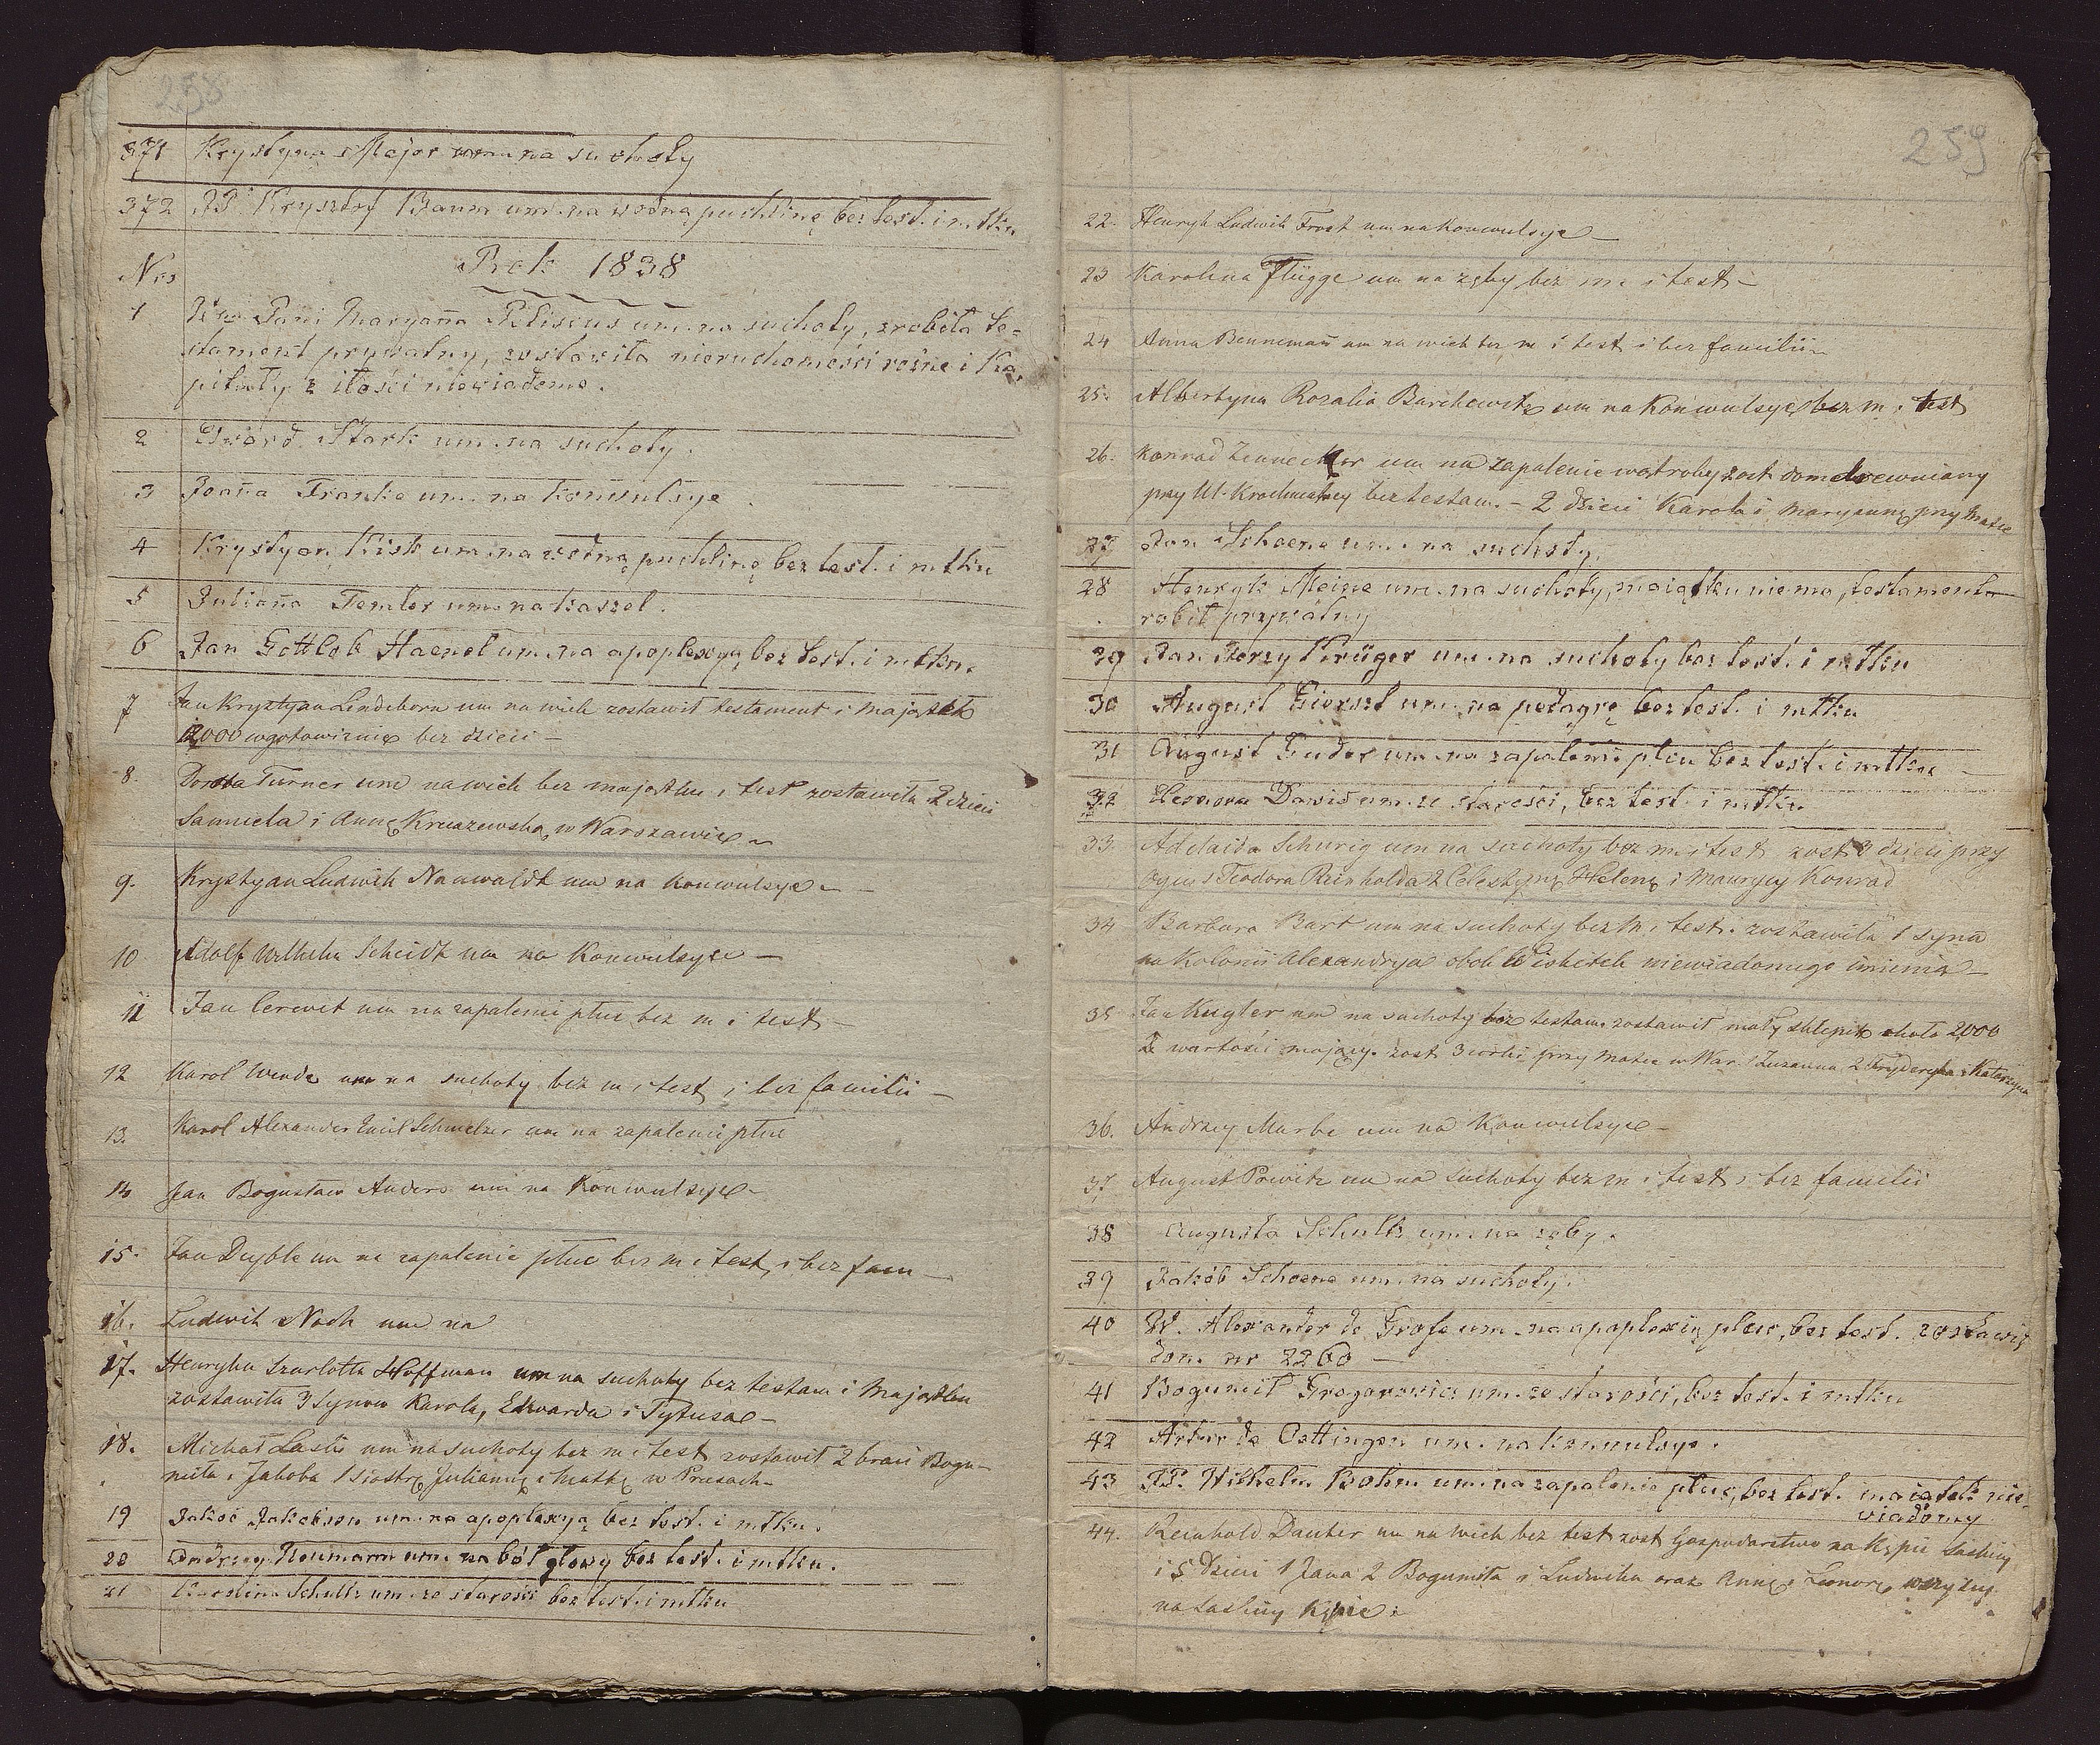 258
371 Krystyna Major um. na suchoty
372 JP. Krysztof Baum um. na wodną puchlinę bez test. i mtku.
Nro Rok 1838
1 Pani Maryanna um. na suchoty, zrobiła te=
stament prywatny, zostawiła nieruchomości rożne i Ka,
pitały z ilości niewiadome.
2 Edward Stark um. na suchoty.
3 Joanna Franke um. na Konvulsye.
4 Krystyan Kisk um. na wodną puchlinę bez test. i mtku
5 Julianna Temler um. na kaszel.
6 Jan Gottlob Haenel um. na apoplexyą bez test. i mtku.
7 Jan Krystyan Lindeborn um na wiek zostawił testament i majątek
12000 w gotowiznie bez dzieci —
8. Dorota Turner um na wiek bez majątku i test zostawiła 2 dzieci
Samuela i Annę Kruszewską w Warszawie
9. Krystyan Ludwik Nauwaldt um na Konwulsye —
10 Adolf Wilhelm Scheidt um na Konwulsye —
11 Jan um na zapalenie płuc bez m i test —
12 Karol Wende um na suchoty bez m i test i bez familii —
13. Karol Alexander Emil Schmelzer um na zapalenie płuc
14 Jan Bogusław Anders um na Konwulsye —
15. Jan Duyble um na zapalenie płuc bez m i test, i bez fam —
16. Ludwik Noch um na
17. Henryka Szarlotta Hoffman um na suchoty bez testam i Majątku
zostawiła 3 synow Karola, Edwarda i Tytusa —
18. Michał Lastis um na suchoty bez m i test zostawił 2 braci Bogu-
miła i Jakoba 1 siostrę Juliannę i Matkę w Prusach —
19 Jakób Jakobson um. na apoplexyą bez test. i mtku.
20 Andrzey Neumann um. na ból głowy bez test. i mtku.
21 Karolina Schultz um. ze starości bez test. i mtku
259
22. Henryk Ludwik Frost um na Konwulsye —
23 Karolina Flügge um na zęby bez m i test —
24 Anna Bennemann um na wiek bez m i test i bez familii
25. Albertyna Rozalia um na Konwulsye bez m i test
26. Konrad Zennecker um na zapalenie wątroby zost dom drewniany
przy Ul. Krochmalney bez testam. — 2 dzieci Karola i Maryannę przy Matce
27 Jan Schoene um. na suchoty.
28 Henryk Meine um. na suchoty, maiątku niema, testamenta
robił prywatny
29 Jan Jerzy Krüger um. na suchoty bez test. i mtku
30 August Gierszt um. na podagrę bez test. i mtku
31 August Guder um. na zapalenie płuc bez test. i mtku
32 Leonora Dawid um. ze starości, bez test. i mtku
33. Adelaida Schurig um na suchoty bez m i test zost 3 dzieci przy
ogcu 1 Teodora Reinholda 2 Celestynę Helenę i Maurycy Konrad
34 Barbara Bart um na suchoty bez m i test. zostawiła 1 syna
na Kolonii Alexandrya obok Wiskitek niewiadomego imienia —
35 Jan Kugler um na suchoty bez testam. zostawił mały sklepik około 2000
zł wartości mający. zost 3 corki przy Matce w War. 1 Zuzanna 2 Fryderyka i Katarzyna
36. Andrzey Marbe um na Konwulsye —
37. August Prewitz um na suchoty bez m i test i bez familii
38 Augusta Schultz um. na zęby.
39 Jakób Schoene um. na suchoty.
40 W. Alexander de Grofe um. na apoplexię płuc, bez test. zostawił
dom. nr 2260 —
41 Bogumił Gregorowicz um. ze starości, bez test. i mtku
42 Artur de Oettingen um. na konwulsye.
43 JP. Wilhelm Bohm um. na zapalenie płuc, bez test. maiątek nie-
wiadomy
44. Reinhold Dauter um na wiek bez test zost Gospodarstwo na Kępie Saskiey
i 5 dzieci 1 Jana 2 Bogumiła i Ludwika oraz Annę i Leonorę wszyscy
na Saskiey Kępie.